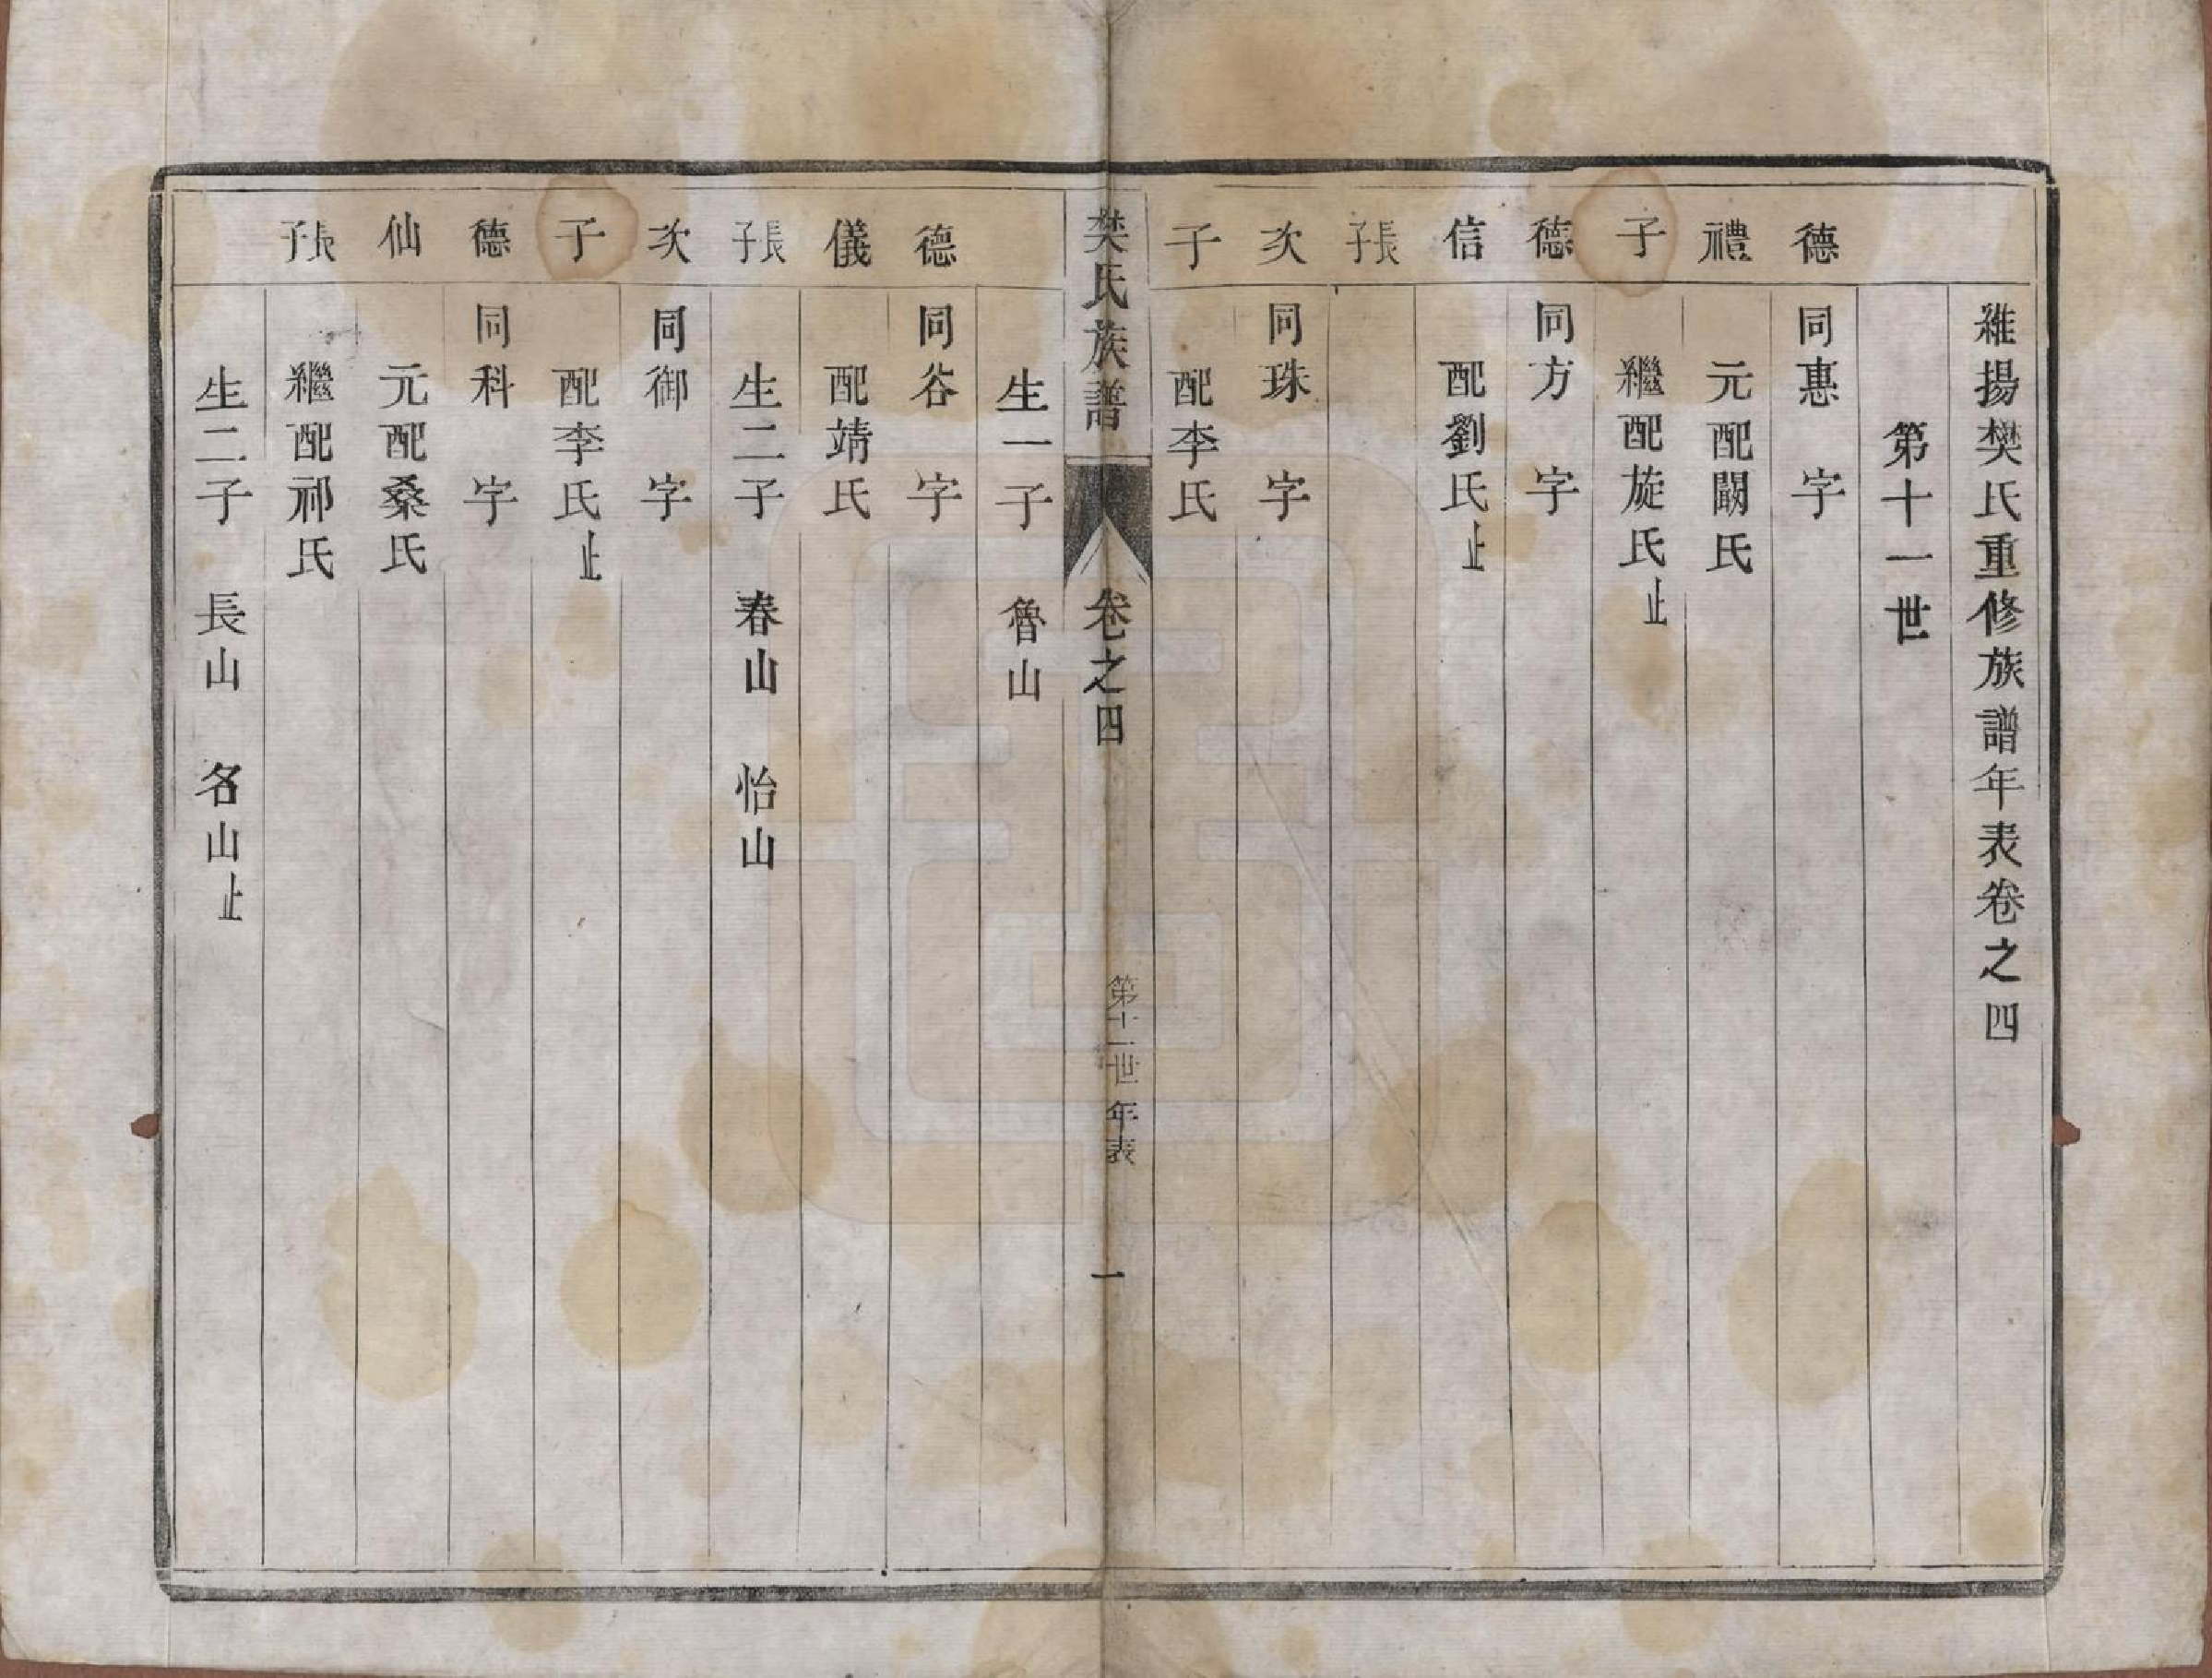 維揚樊氏重修族譜年表卷之四
第十一世
德 同惠 字
禮 元配闞氏
子 繼配旋氏止
德 同方 字
信 配劉氏止
長子
次 同珠 字
子 配李氏
樊氏族譜 卷之四 第十一世年表 一
生一子 魯山
德 同谷 字
儀 配靖氏
長子 生二子 春山 怡山
次 同御 字
子 配李氏止
德 同科 字
仙 元配桑氏
長子 繼配祁氏
生二子 長山 名山止